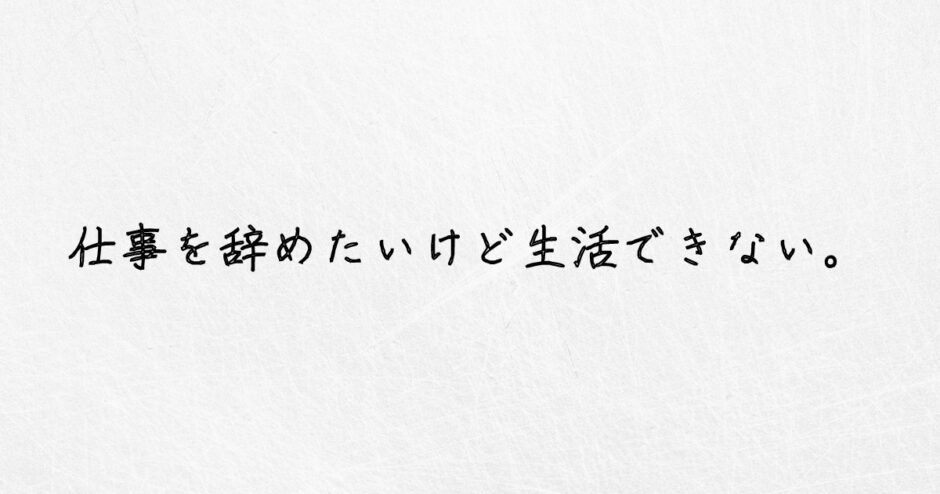 仕事を辞めたいけど生活できない。